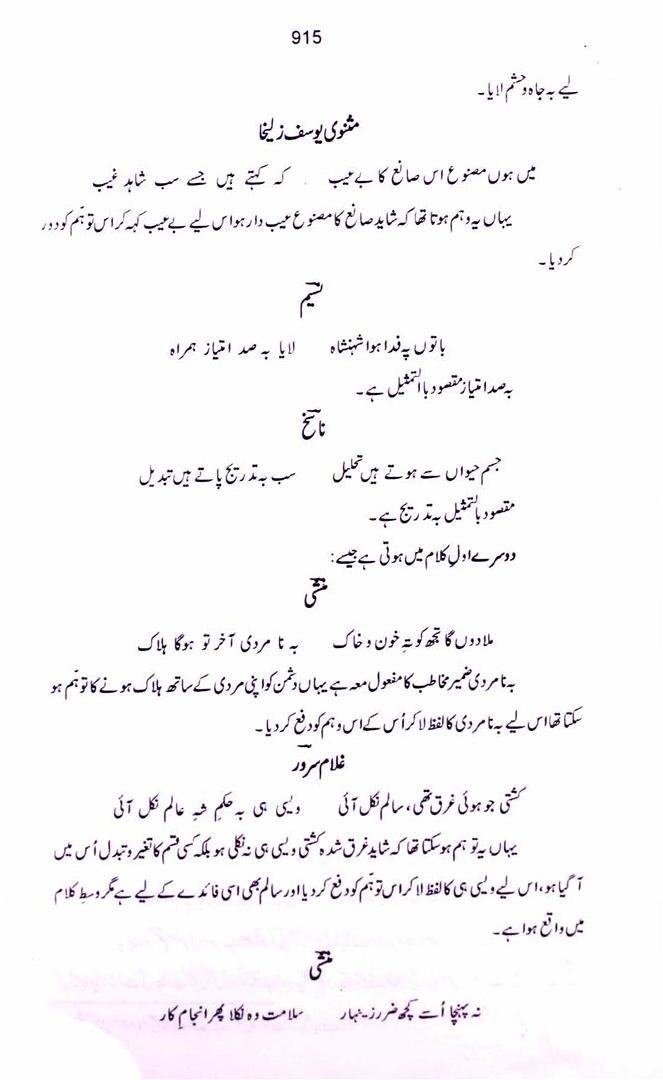 915
لیے بہ جاہ و حشم لایا۔
مثنوی یوسف زلیخا
میں ہوں مصنوع اس صانع کا بے عیب کہ کہتے ہیں جسے سب شاہد غیب
یہاں یہ وہم ہوتا تھا کہ شاید صانع کا مصنوع عیب دار ہو اس لیے بے عیب کہہ کر اس توہّم کو دور
کر دیا۔
نسیم
باتوں پہ فدا ہوا شہنشاہ لایا بہ صد امتیاز ہمراہ
بہ صد امتیاز مقصود باالتمثیل ہے۔
ناسخ
جسم حیواں سے ہوتے ہیں تحلیل سب بہ تدریج پاتے ہیں تبدیل
مقصود بالتمثیل بہ تدریج ہے۔
دوسرے اولِ کلام میں ہوتی ہے جیسے:
منشی
ملا دوں گا تجھ کو تہِ خون و خاک بہ نا مردی آخر تو ہوگا ہلاک
بہ نا مردی ضمیر مخاطب کا مفعول معہ ہے یہاں دشمن کو اپنی مردی کے ساتھ ہلاک ہونے کا توہّم ہو
سکتا تھا اس لیے بہ نا مردی کا لفظ لا کر اُس کے اس وہم کو دفع کر دیا۔
غلام سرور
کشتی جو ہوئی غرق تھی، سالم نکل آئی ویسی ہی بہ حکمِ شہِ عالم نکل آئی
یہاں یہ تو ہم ہو سکتا تھا کہ شاید غرق شدہ کشتی ویسی ہی نہ نکلی ہو بلکہ کسی قسم کا تغیر و تبدل اُس میں
آ گیا ہو، اس لیے ویسی ہی کا لفظ لا کر اس توہّم کو دفع کر دیا اور سالم بھی اسی فائدے کے لیے ہے مگر وسطِ کلام
میں واقع ہوا ہے۔
منشی
نہ پہنچا اُسے کچھ ضرر زینہار سلامت وہ نکلا پھر انجامِ کار